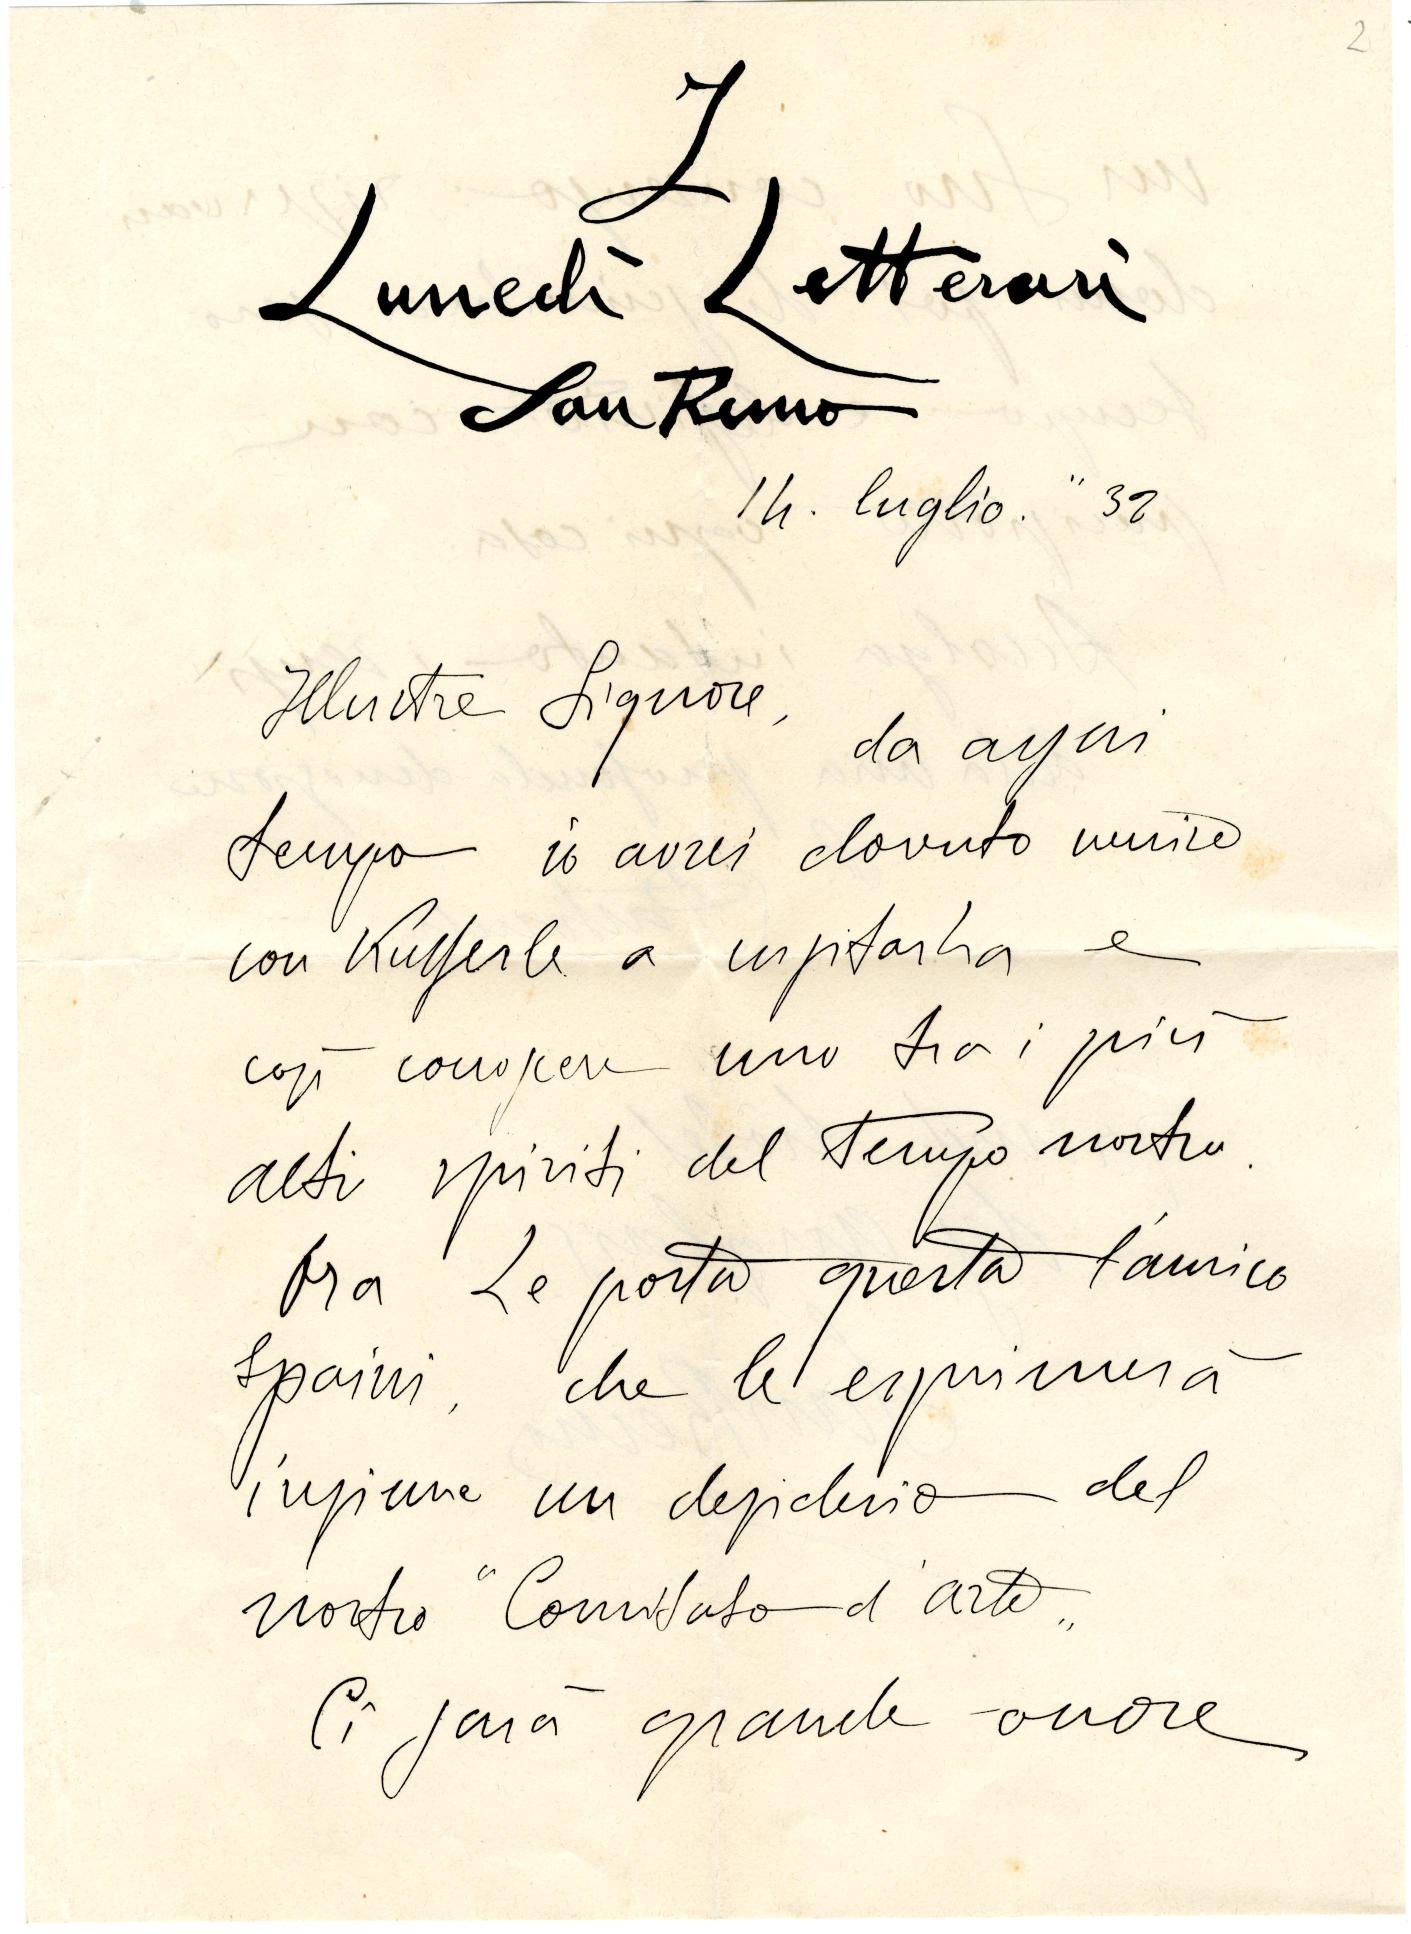 2
I
Lunedì Letterari
San Remo
14. luglio. " 32
Illustre Signore,
da assai
tempo io avrei dovuto venire
con Kufferle a visitarla e
così conoscere uno tra i più
alti spiriti del tempo nostro.
Ora Le porta questa l'amico
Spaini, che le esprimerà
insieme un desiderio del
nostro "Comitato d'arte„
Ci sarà grande onore